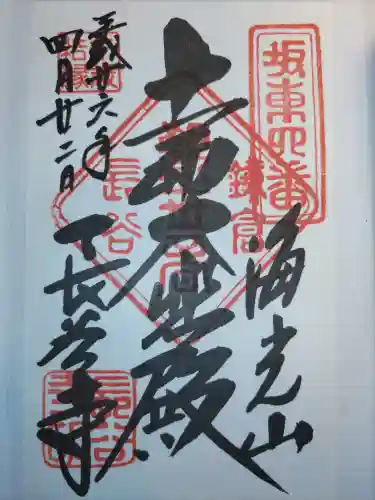 坂東四番
海光山
鎌倉
十一面大悲殿
長谷
長谷寺
平成廿六年
四月廿二日